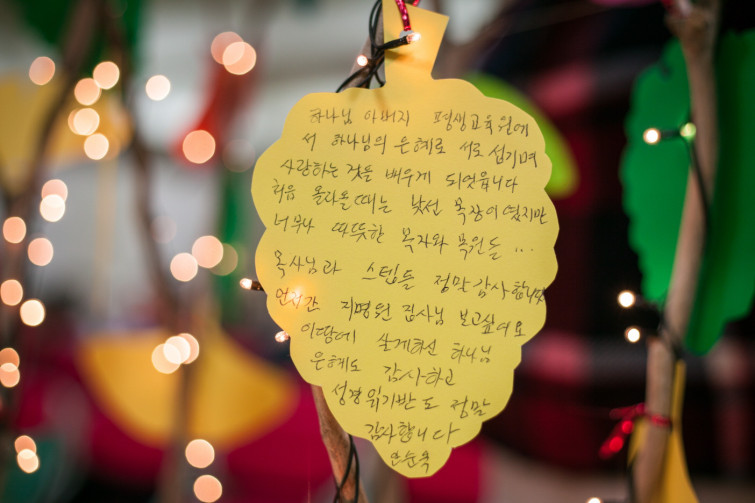 하나님 아버지 평생교육원에
서 하나님의 은혜로 서로 섬기며
사랑하는 것을 배우게 되엇읍니다
처음 올라올때는 낯선 목장이였지만
너무나 따뜻한 목자와 목원들...
목사님과 스텝들 정말 감사합니다
언저간 지명된 집사님 보고싶어요
이땅에 살게하신 하나님
은혜도 감사하고
성경읽기반도 정말
감사합니다
안순옥